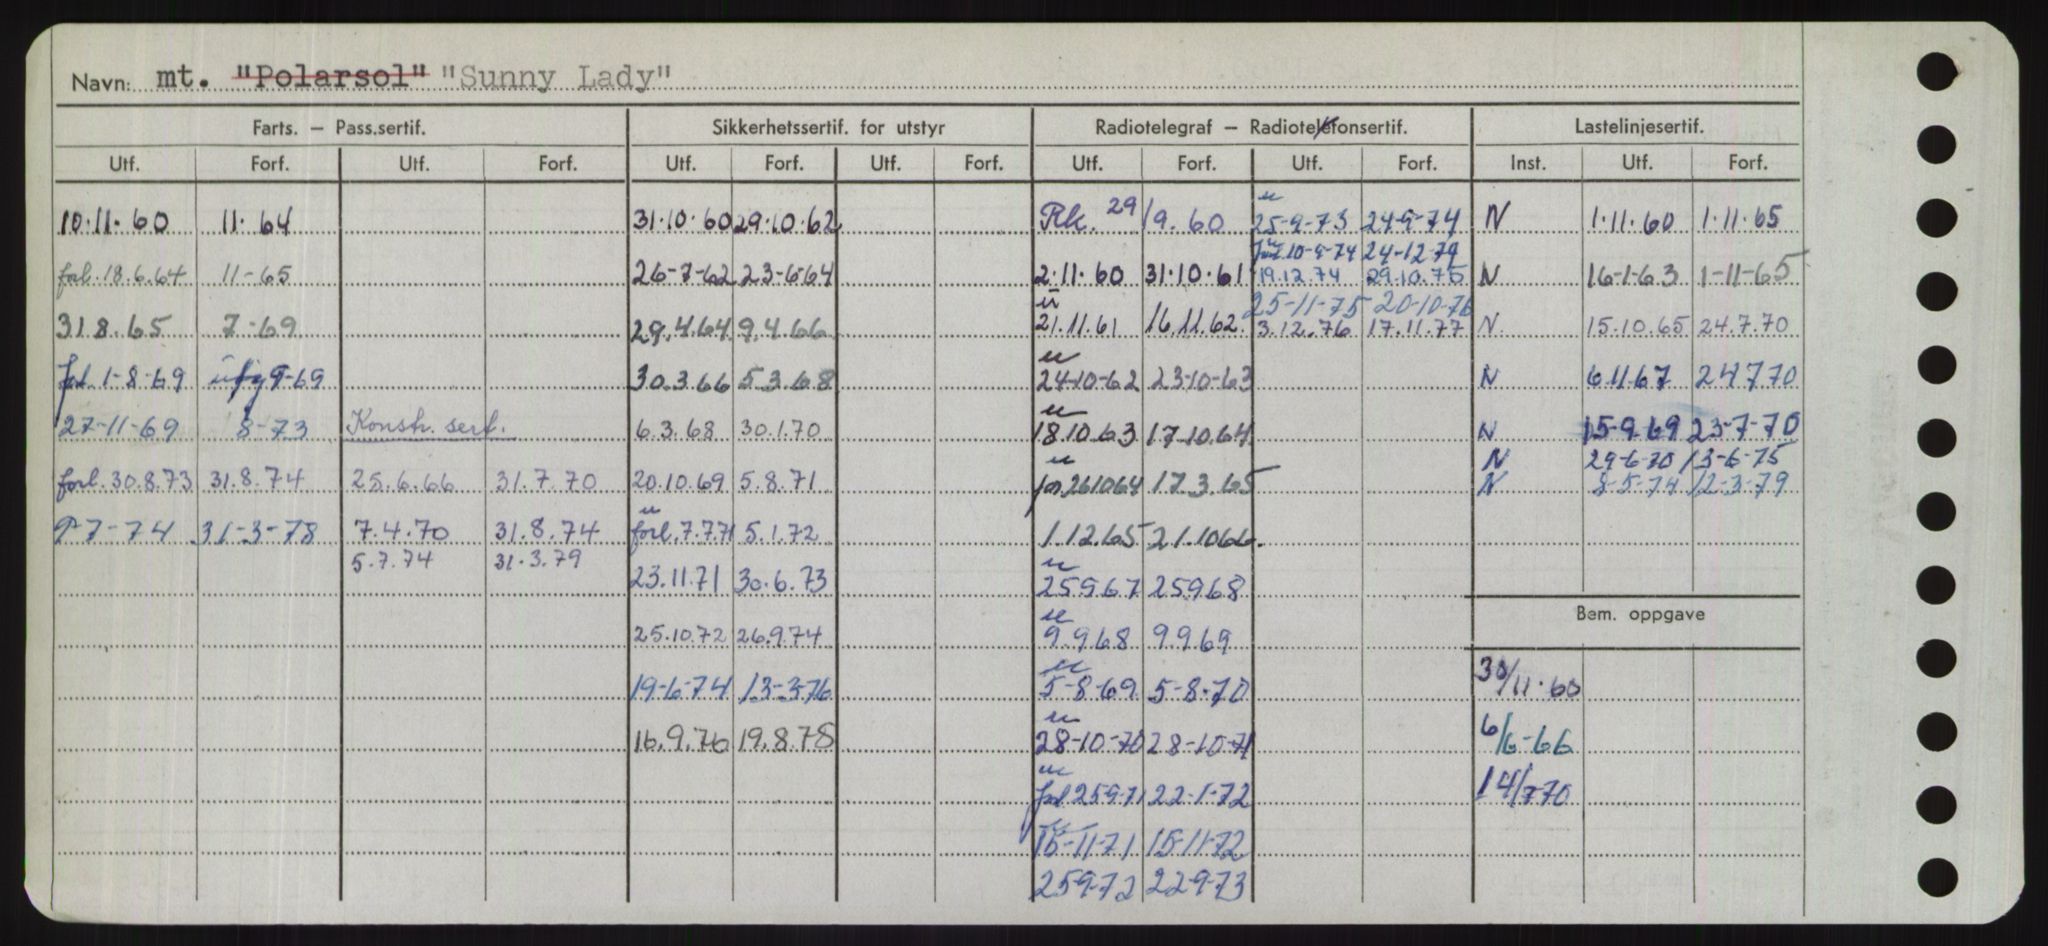 Navn: mt. "Polarsol" "Sunny Lady"
Farts. – Pass.sertif. Sikkerhetssertif. for utstyr Radiotelegraf – Radiotelefonsertif. Lastelinjesertif.
Utf. Forf. Utf. Forf. Utf. Forf. Utf. Forf. Utf. Forf. Utf. Forf. Inst. Utf. Forf.
10.11.60 11.64 31.10.60 29.10.62 Rk. 29/9.60 u 25-9-73 24-9-74 N 1.11.60 1.11.65
10-9-74 24-12-74
forl. 18.6.64 11-65 26-7-62 23-6-64 2.11.60 31.10.61 19.12.74 29.10.75 N 16-1-63 1-11-65
25-11-75 20-10-76
31.8.65 7-69 29.4.64 9.4.66 u 21.11.61 16.11.62. 3.12.76 17.11.77 N 15.10.65 24.7.70
forl. 1-8-69 9-69 30.3.66 5.3.68 u 24-10-62 23-10-63 N 6.11.67 24.7.70
27-11-69 8-73 Konstr. sert. 6.3.68 30.1.70 u 18.10.63 17.10.64 N 15-9.69 23-7-70
N 29-6-70 13-6-75
forl. 30.8.73 31.8.74 25.6.66 31.7.70 20.10.69 5.8.71 u for 26.10.64 17.3.65 N 8-5-74 12-3-79
9-7-74 31-3-78 7.4.70 31.8.74 u forl. 7.7.71 5.1.72 1.12.65 21.10.66.
5.7.74 31.3.79
23.11.71 30.6.73 u 25.9.67 25.9.68
Bem. oppgave
25.10.72 26.9.74 u 9.9.68 9.9.69
19-6-74 13-3-76 u 5-8-69 5-8-70 30/11.60
16.9.76 19.8.78 u 28-10-70 28-10-71 6/6-66
u forl 25-9-71 22-1-72 14/7-70
u 15-11-71 15-11-72
25-9-72 22-9-73